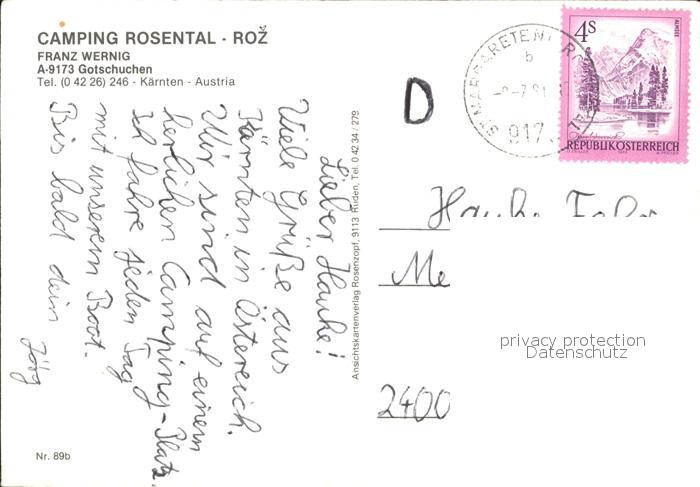 CAMPING ROSENTAL - ROŽ
FRANZ WERNIG
A-9173 Gotschuchen
Tel. (0 42 26) 246 - Kärnten - Austria
Lieber Hauke!
Viele Grüße aus
Kärnten in Östereich.
Wir sind auf einem
herlichen Camping-Platz.
Ich fahre jeden Tag
mit unserem Boot.
Bis bald dein Jörg
Nr. 89b
Ansichtskartenverlag Rosenzopf, 9113 Ruden, Tel. 0 42 34 / 279
D
ST. MARGARETEN
b
917
4S
ALMSEE
REPUBLIK ÖSTERREICH
Hauke
Me
2400
privacy protection
Datenschutz